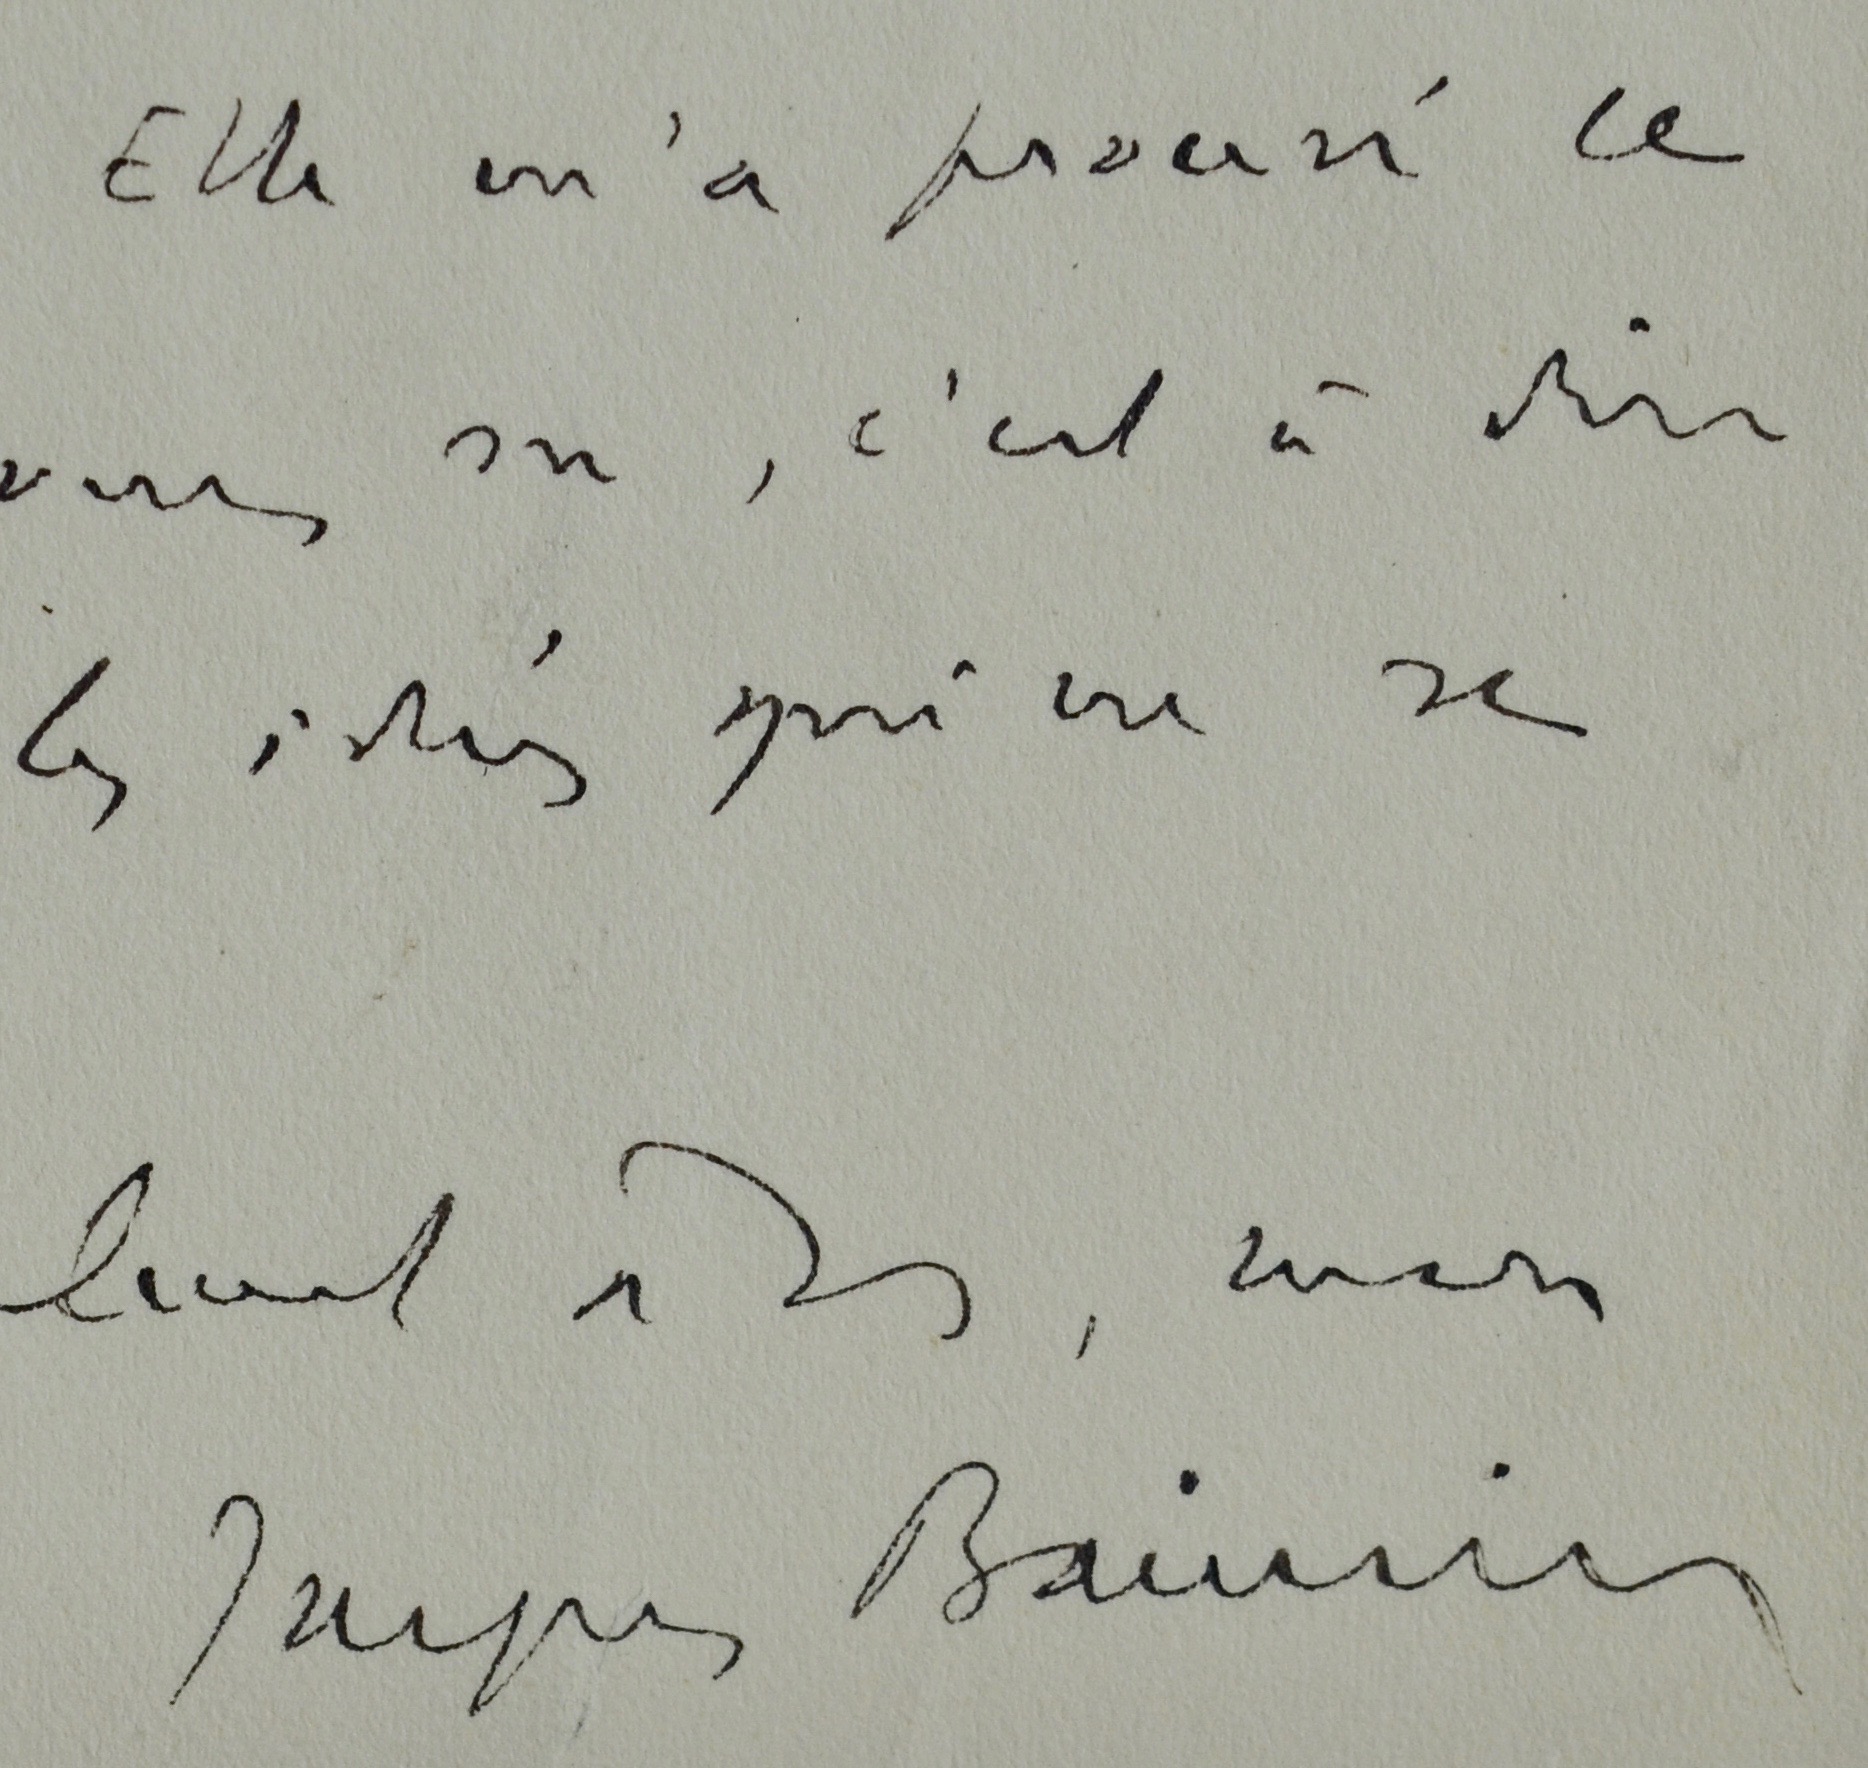 Elle m'a procuré ce
, c'est à dire
les idées qui ne se
à vous, mon
Jacques Bainville